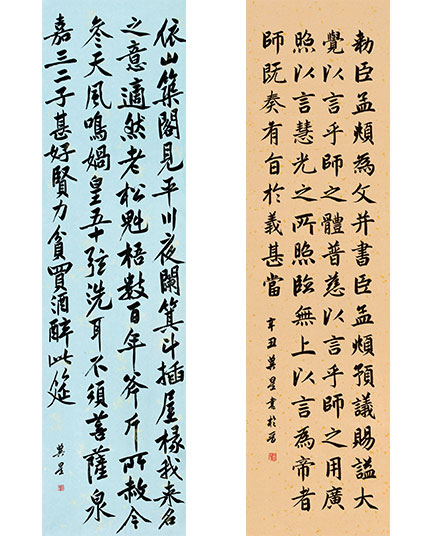 勅臣孟頫為文并書臣孟頫預議賜謚大
覺以言乎師之體普慈以言乎師之用廣
照以言慧光之所照臨無上以言為帝者
師既奏有旨於義甚當
辛丑英星書於
依山築閣見平川夜闌箕斗插屋椽我來名
之意適然老松魁梧數百年斧斤所赦今
參天風鳴媧皇五十弦洗耳不須菩薩泉
嘉三二子甚好賢力貧買酒醉此筵
英星